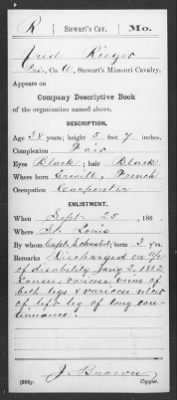 R Stewart's Cav. Mo.
Fred Rieger
Pvt., Co. A, Stewart's Missouri Cavalry.
Appears on
Company Descriptive Book
of the organization named above.
DESCRIPTION.
Age 38 years; height 5 feet 7 inches.
Complexion Fair
Eyes Black; hair Black
Where born French
Occupation Carpenter
ENLISTMENT.
When Sept 25, 186 .
Where St. Louis
By whom Capt. term 3 y'rs.
Remarks Discharged on
of disability Jany 2, 1862
Cause, varicose veins of
both legs & varicose ulcer
of left leg of long con-
tinuance.
J. Brown
Copyist.